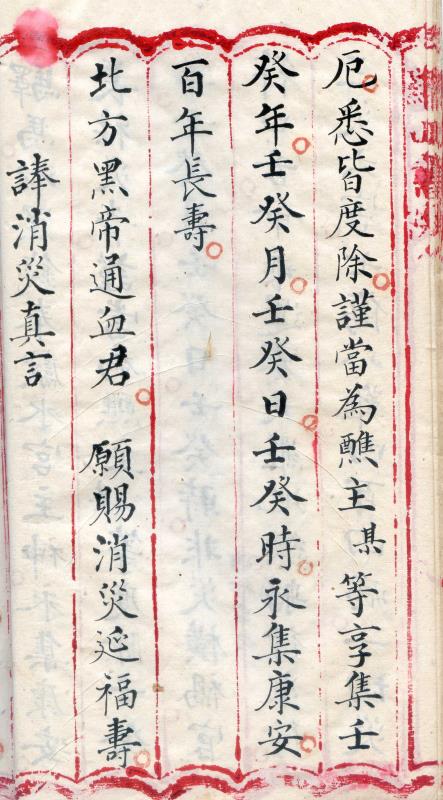 厄悉皆度除謹當為醮主某等享集壬
癸年壬癸月壬癸日壬癸時永集康安
百年長壽
北方黑帝通血君 願賜消災延福壽
諱消災真言